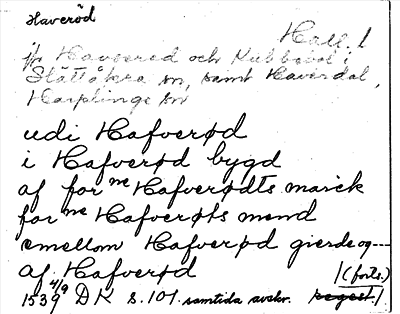 Haveröd
Hall. l
jfr Haverred och Kubbavad i
Slättåkra sn, samt Haverdal,
Harplinge sn
udi Hafverød
i Hafverød bygd
af forne Hafverødts marck
forne Hafverøts mend
emellom Hafverød gierde og---
af Hafverød
1539 4/9 DK s. 101. samtida avskr. regest/.
/(forts.)